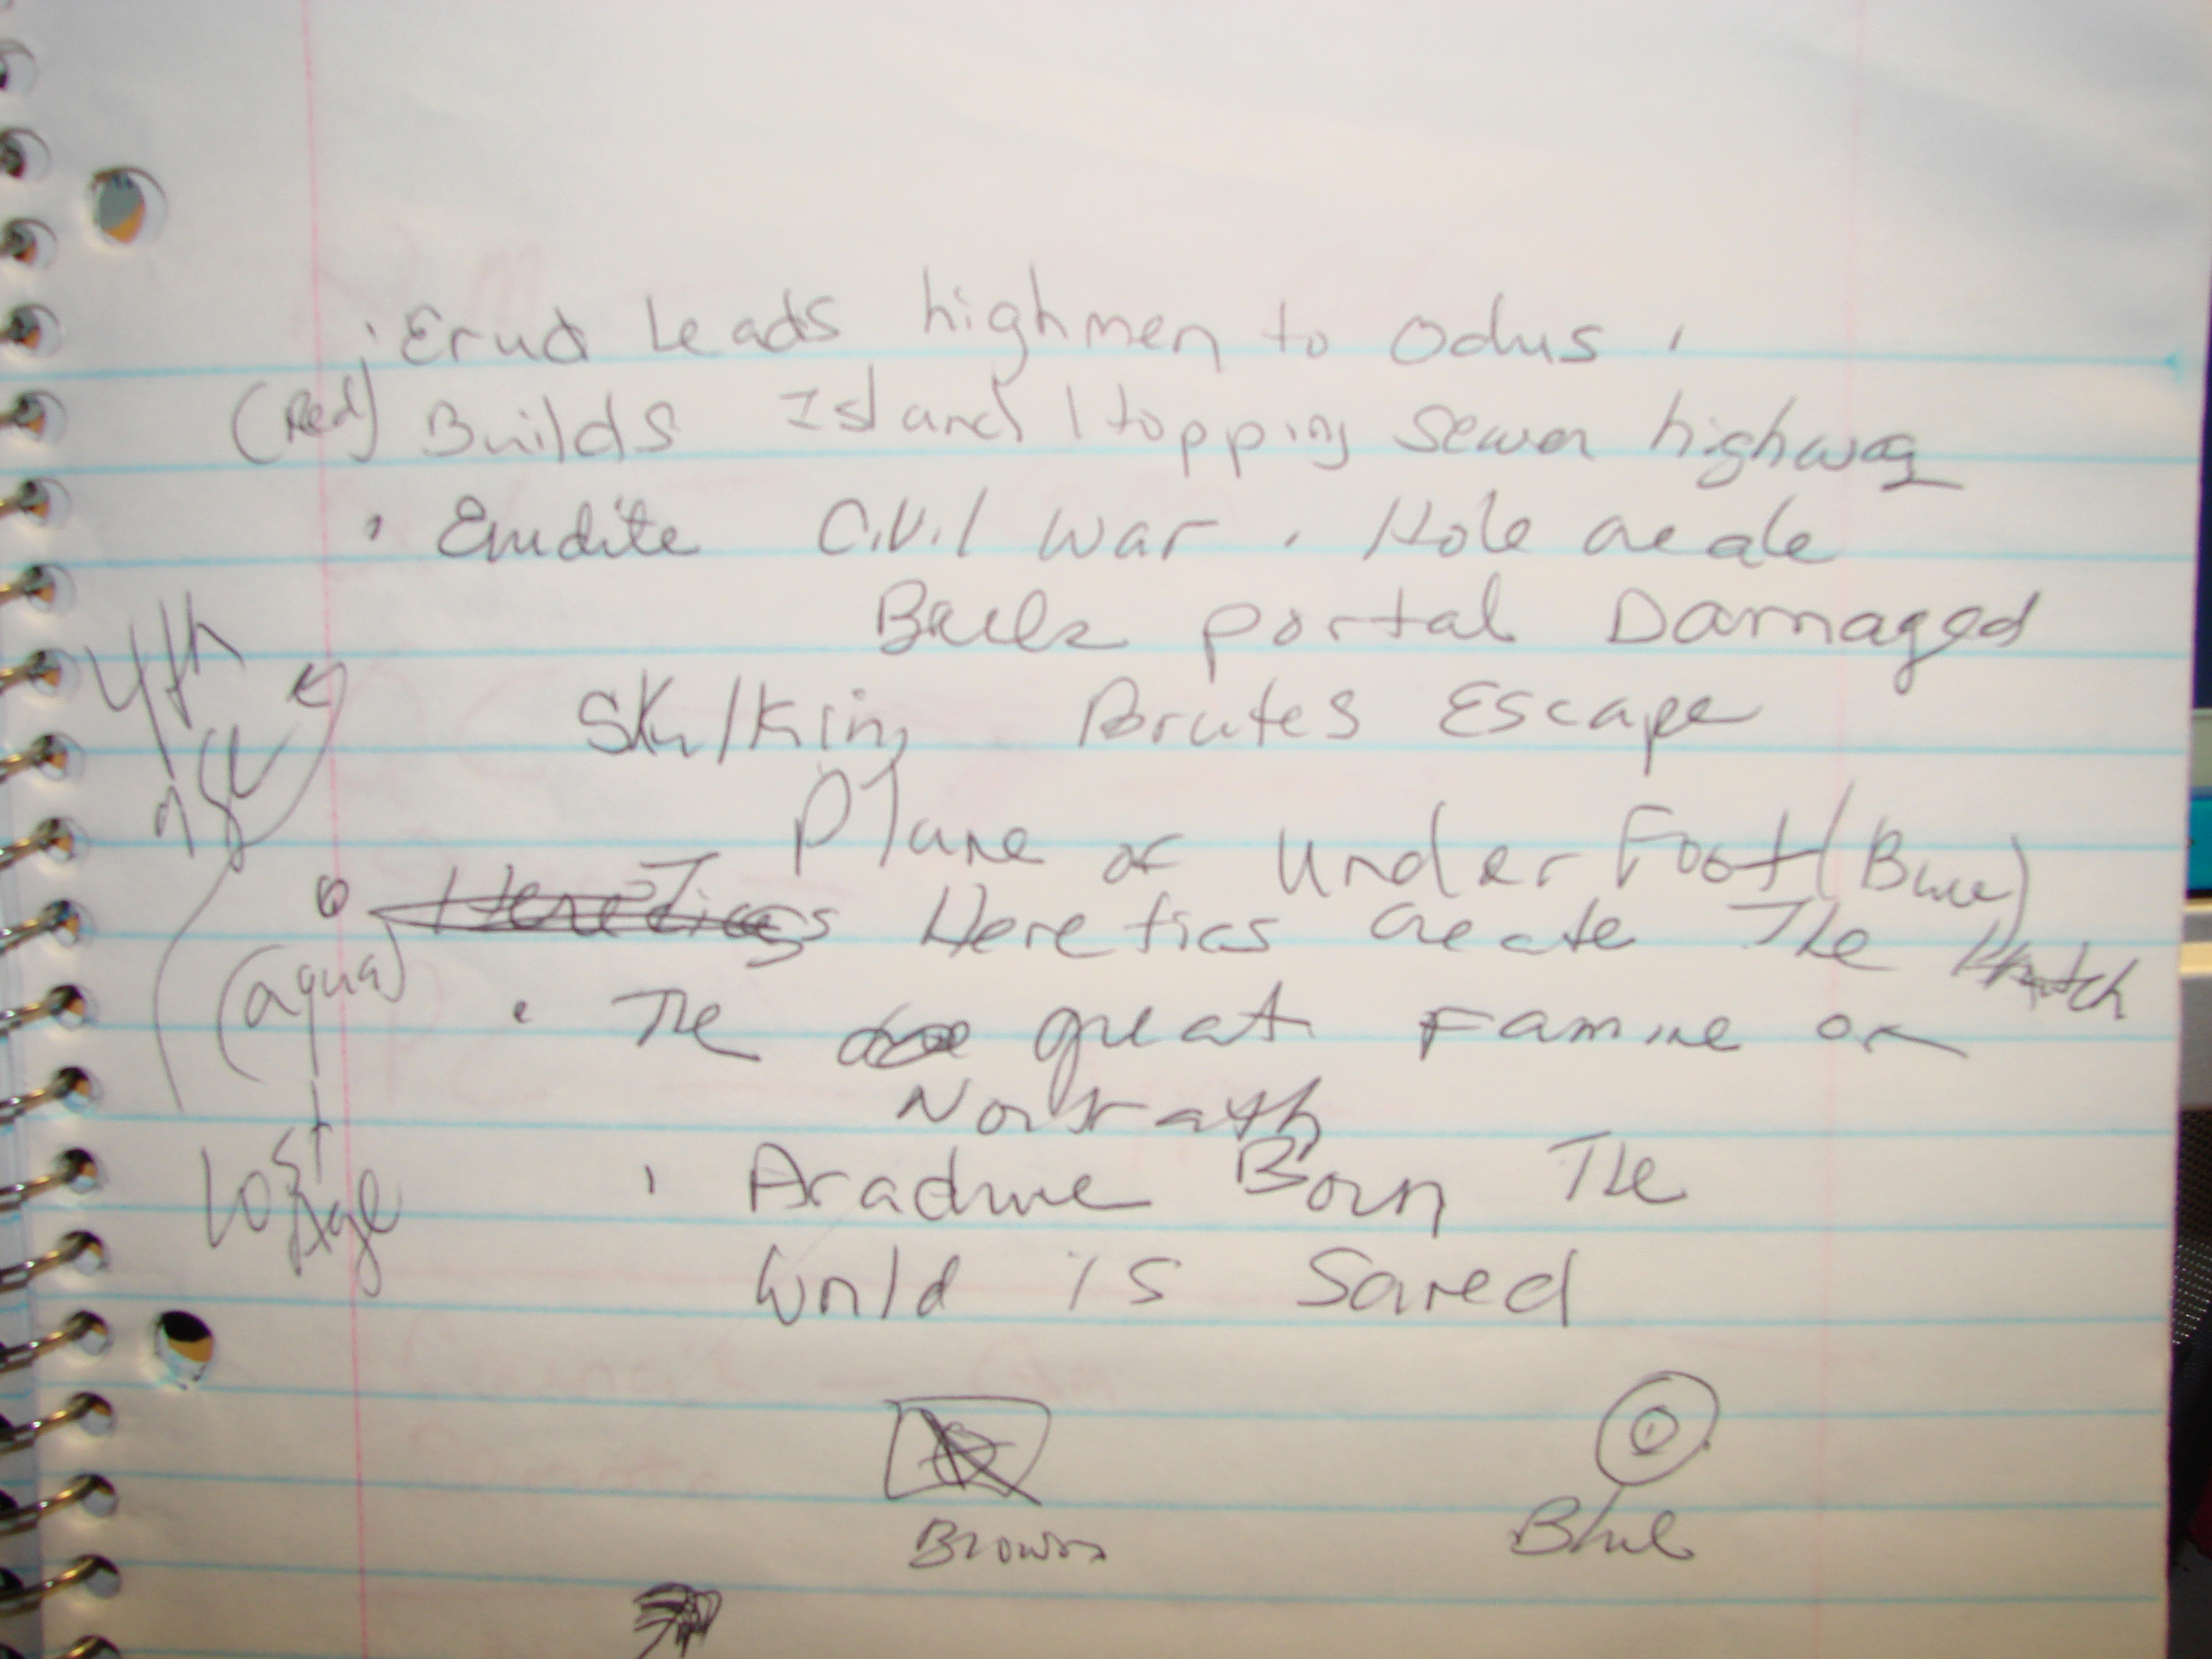 · Erud Leads highmen to Odus ·
(Red) Builds Island / topping sewer highway
· Erudite Civil War . Hole create
Back portal Damaged
Skulking Brutes Escape
4th
Age
Plane of Under Foot (Blue)
Heretics Heretics create The
(aqua)
· The great Famine on
Norrath
Lost Age
· Aradune Born The
World is Saved
Brown Blue